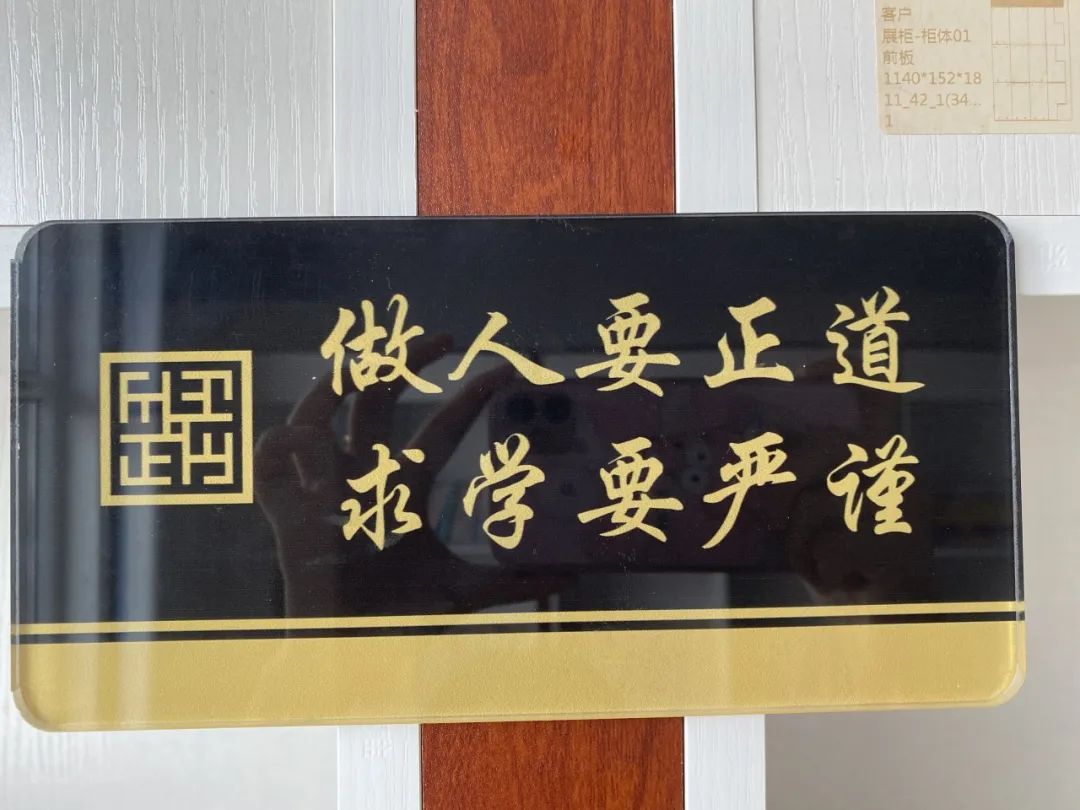 客户
展柜-柜体01
前板
1140*152*18
11_42_1(34...
1
做人要正道
求学要严谨